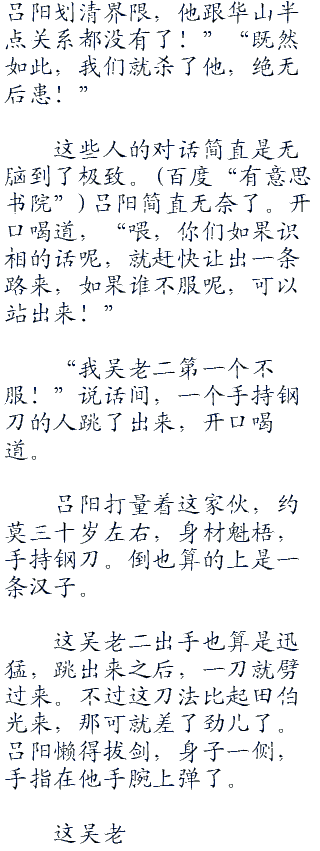 吕阳划清界限，他跟华山半
点关系都没有了！”“既然
如此，我们就杀了他，绝无
后患！”
这些人的对话简直是无
脑到了极致。(百度“有意思
书院”)吕阳简直无奈了。开
口喝道，“喂，你们如果识
相的话呢，就赶快让出一条
路来，如果谁不服呢，可以
站出来！”
“我吴老二第一个不
服！”说话间，一个手持钢
刀的人跳了出来，开口喝
道。
吕阳打量着这家伙，约
莫三十岁左右，身材魁梧，
手持钢刀。倒也算的上是一
条汉子。
这吴老二出手也算是迅
猛，跳出来之后，一刀就劈
过来。不过这刀法比起田伯
光来，那可就差了劲儿了。
吕阳懒得拔剑，身子一侧，
手指在他手腕上弹了。
这吴老